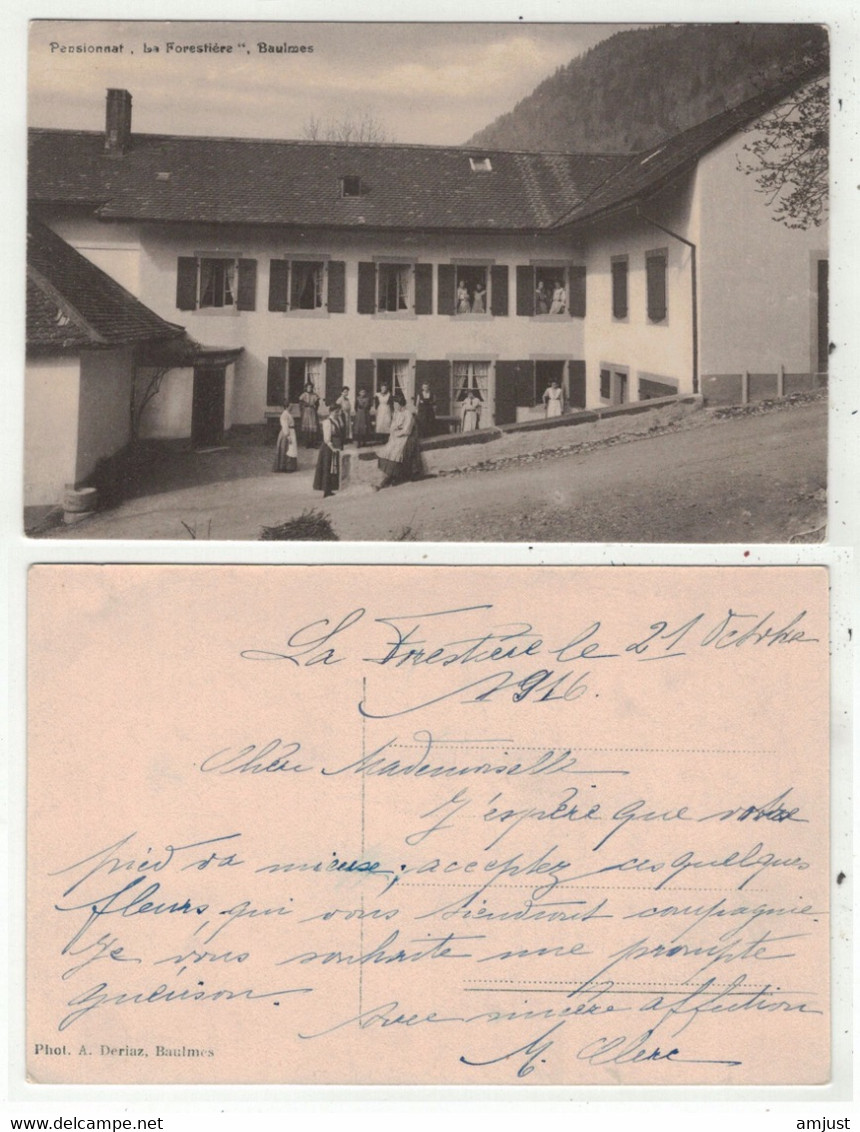 Pensionnat „ La Forestière “, Baulmes
La Forestière le 21 Octobre
1916.
Chère Mademoiselle
J'espère que votre
pied va mieux; acceptez ces quelques
fleurs, qui vous tiendront compagnie.
Je vous souhaite une prompte
guérison.
Avec sincère affection
M. Clerc
Phot. A. Deriaz, Baulmes
amjust